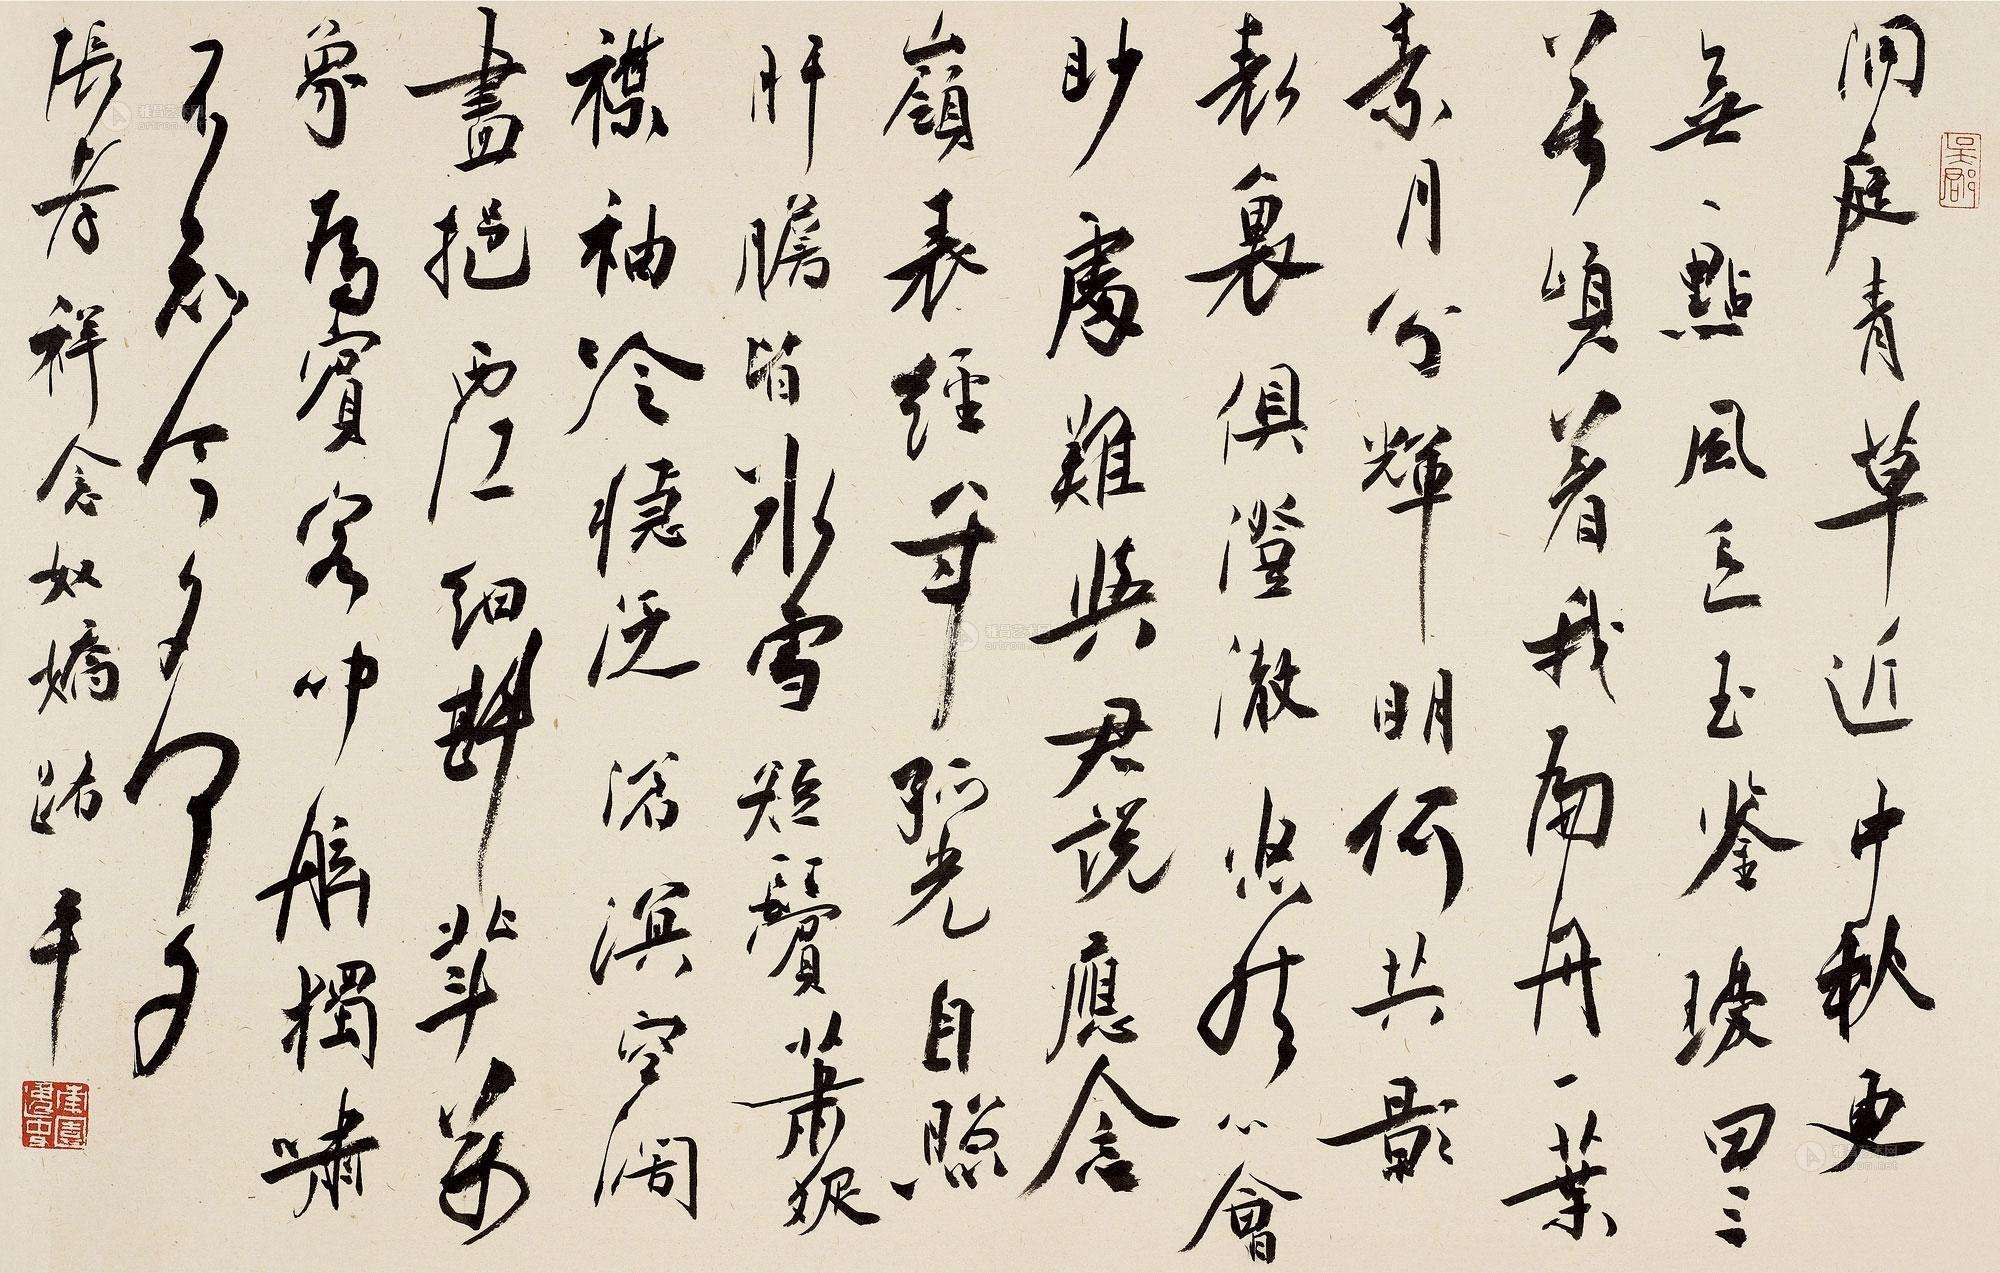 吳郡
洞庭青草近中秋更
無一點風色玉鑒瓊田三
萬頃着我扁舟一葉
素月分輝明河共影
表裏俱澄澈悠然心會
妙處難與君說應念
嶺表經年孤光自照
肝膽皆冰雪短鬢蕭
襟袖冷穩泛滄溟空闊
盡挹西江細斟北斗萬
象為賓客叩舷獨嘯
不知今夕何夕
張孝祥念奴嬌
雅昌艺术网
artron.net